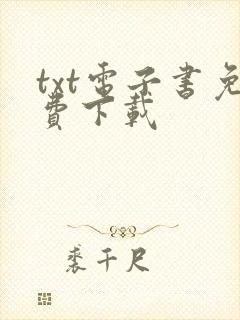 txt電子書免
費下載
裘千尺